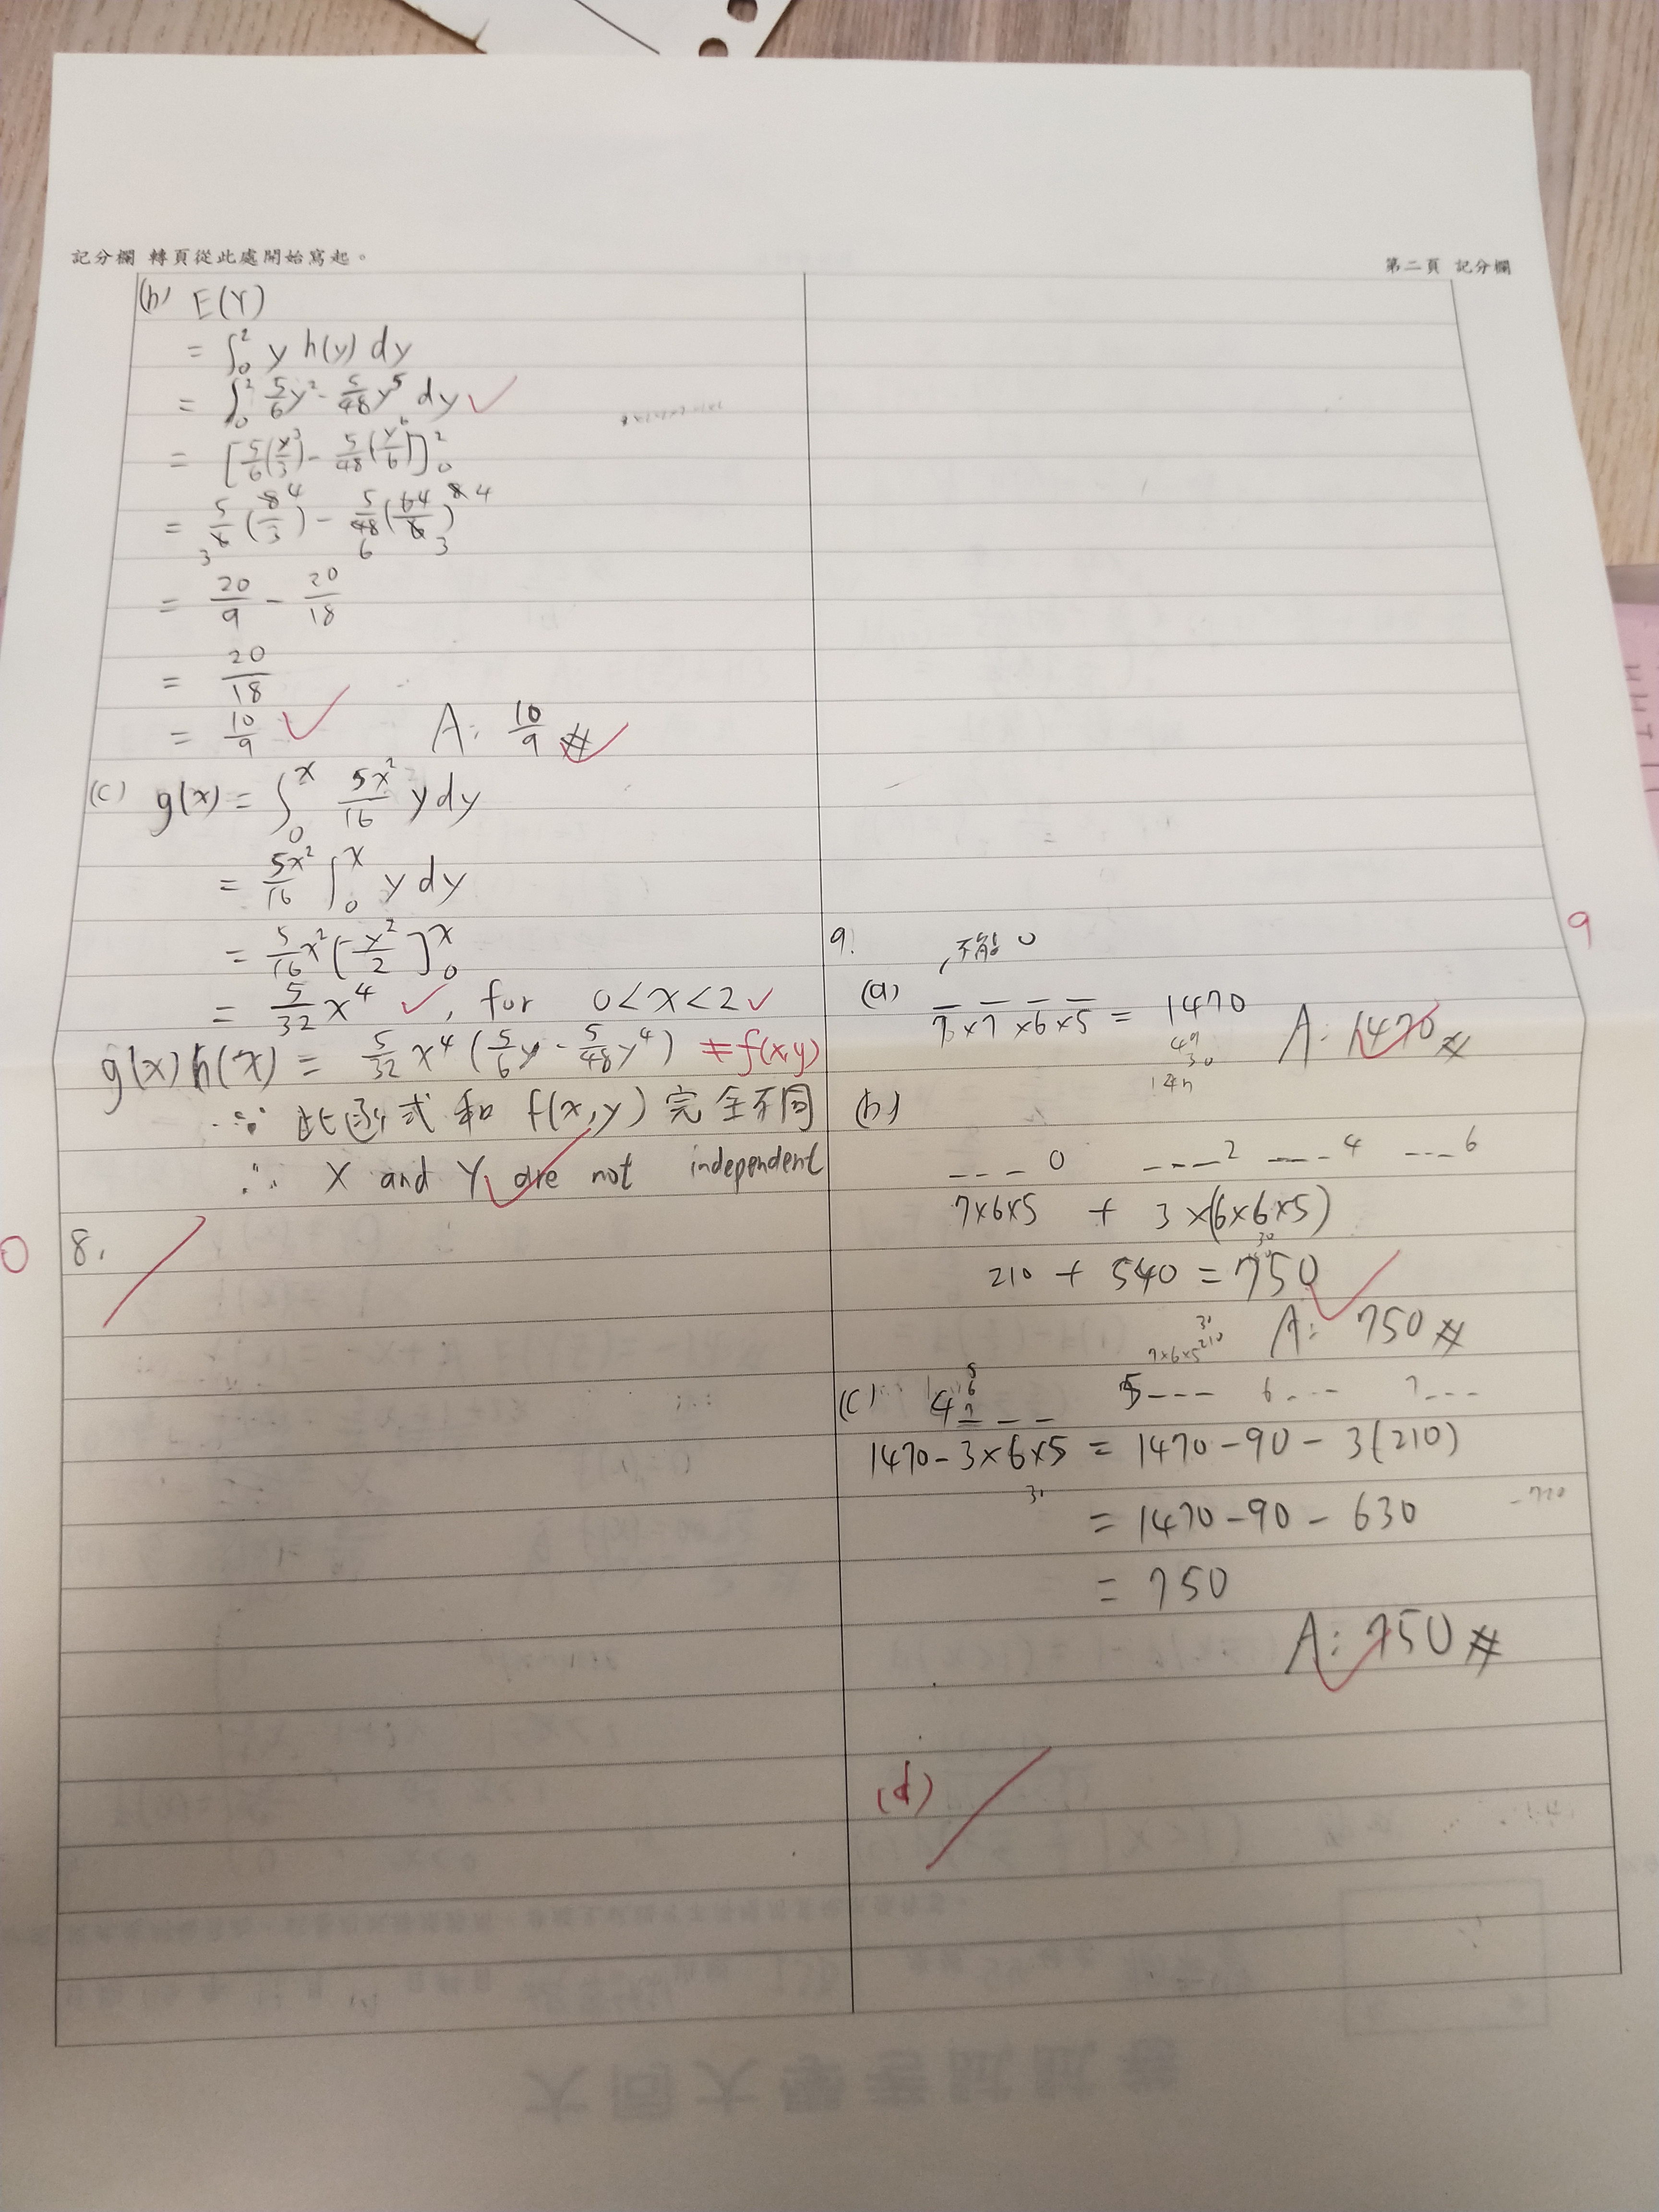 記分欄 轉頁從此處開始寫起。
第二頁 記分欄
(b) E(Y)
= ∫₀² y h(y) dy
= ∫₀² 5/6 y² - 5/48 y⁵ dy ✓
= [5/6(y³/3) - 5/48(y⁶/6)]₀²
= 5/6 (8/3) - 5/48 (64/6)
= 20/9 - 20/18
= 20/18
= 10/9 ✓ A: 10/9 # ✓
(c) g(x) = ∫₀ˣ 5x²/16 y dy
= 5x²/16 ∫₀ˣ y dy
= 5/16 x² [y²/2]₀ˣ
= 5/32 x⁴ ✓, for 0<x<2 ✓
g(x) h(x) = 5/32 x⁴ (5/6 y - 5/48 y⁴) ≠ f(x,y)
∵ 此函式和 f(x,y) 完全不同
∴ X and Y are not independent
0
8.
9
9.
不能 0
(a) 7×7×6×5 = 1470
49
30
A: 1470 #
(b)
_ _ _ 0 _ _ _ 2 _ _ _ 4 _ _ _ 6
7×6×5 + 3×(6×6×5)
210 + 540 = 750
30
7×6×5 210
A: 750 #
(c) 4 _ _ _ 5 _ _ _ 6 _ _ _ 7 _ _ _
5
6
7
1470 - 3×6×5 = 1470 - 90 - 3(210)
30
= 1470 - 90 - 630
-720
= 750
A: 750 #
(d)